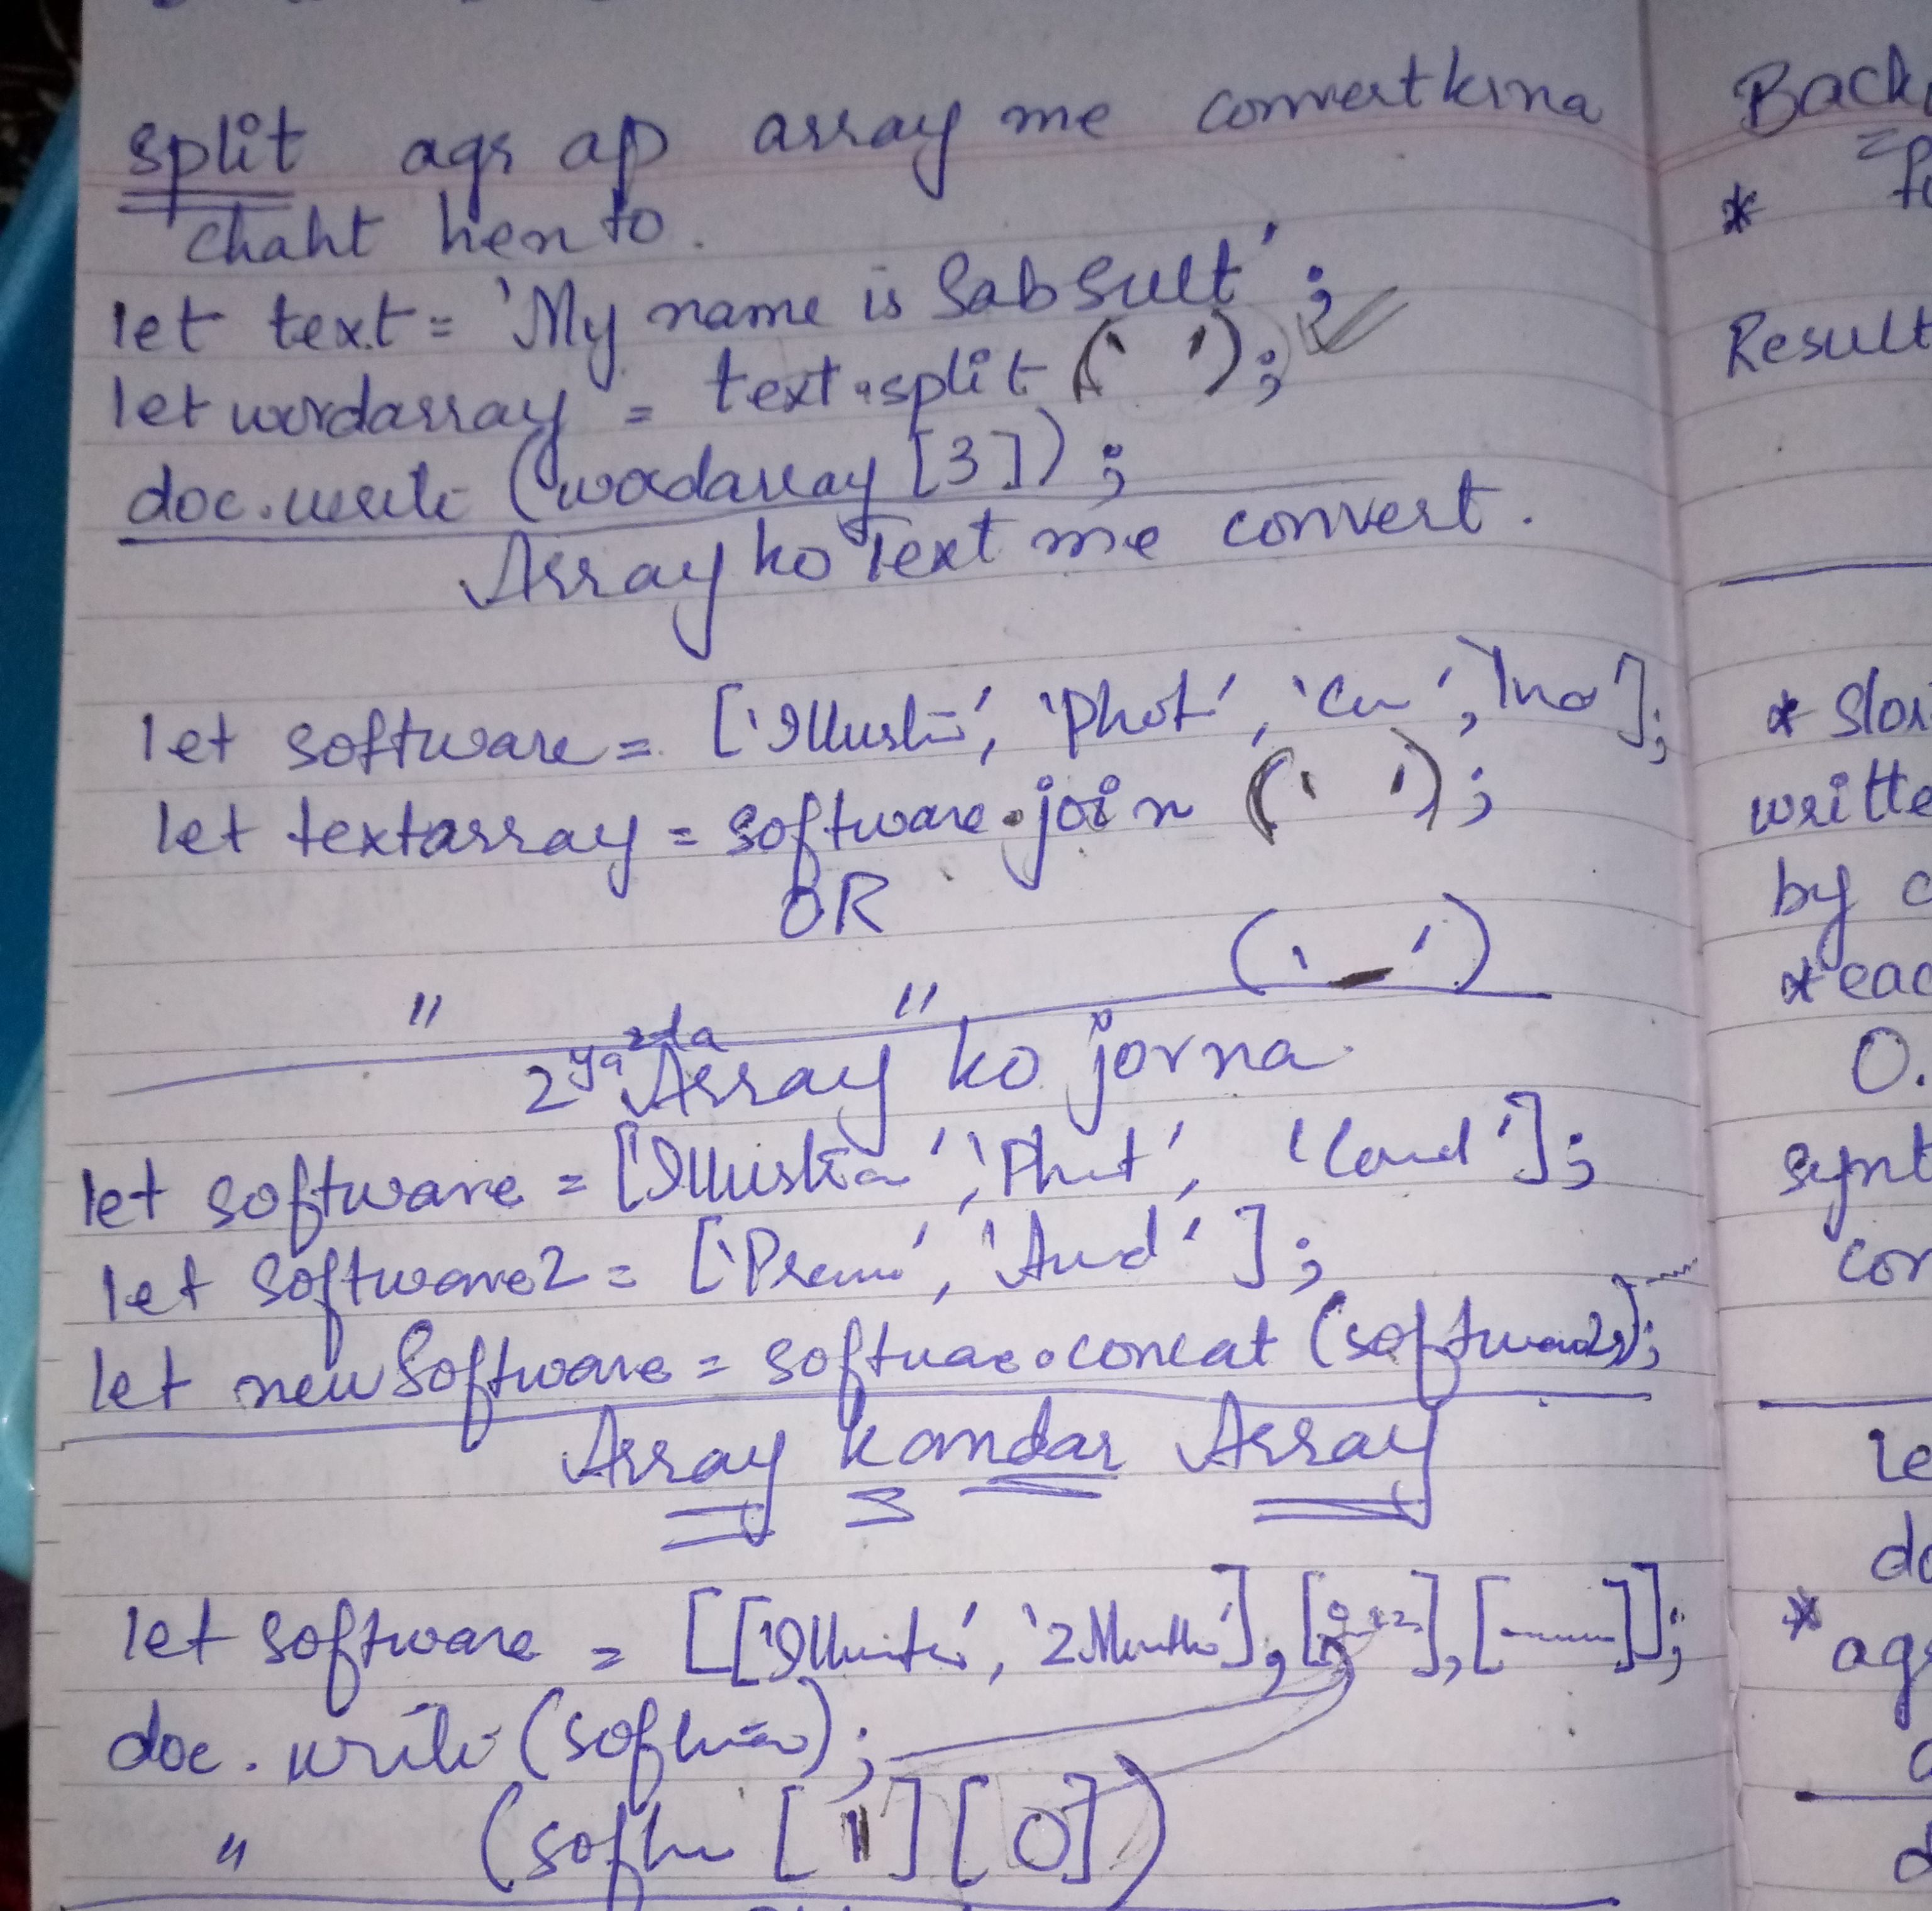 split agr ap array me convert krna
chaht hen to.
let text = 'My name is Sab Sult';
let wordarray = text.split(' ');
doc.write (wordarray [3]);
Array ko Text me convert.
let software = ['Illustr', 'Phot', 'Cu', 'Ino'];
let textarray = software.join (' ');
OR
" " ('_')
2 ya 2 da Array ko jorna
let software = ['Illustra', 'Phot', 'Cord'];
let software2 = ['Prem', 'Aud'];
let newSoftware = softuae.concat (software2);
Array k andar Array
let software = [['Illustr', '2Month'], [], [------]];
doc.write (softw);
" (softw [1] [0])
Back
*
Result
* Slo
written
by c
* eac
0.
synt
con
le
do
* agr
d